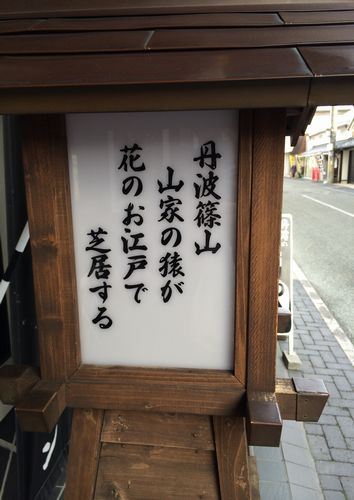 丹波篠山
山家の猿が
花のお江戸で
芝居する